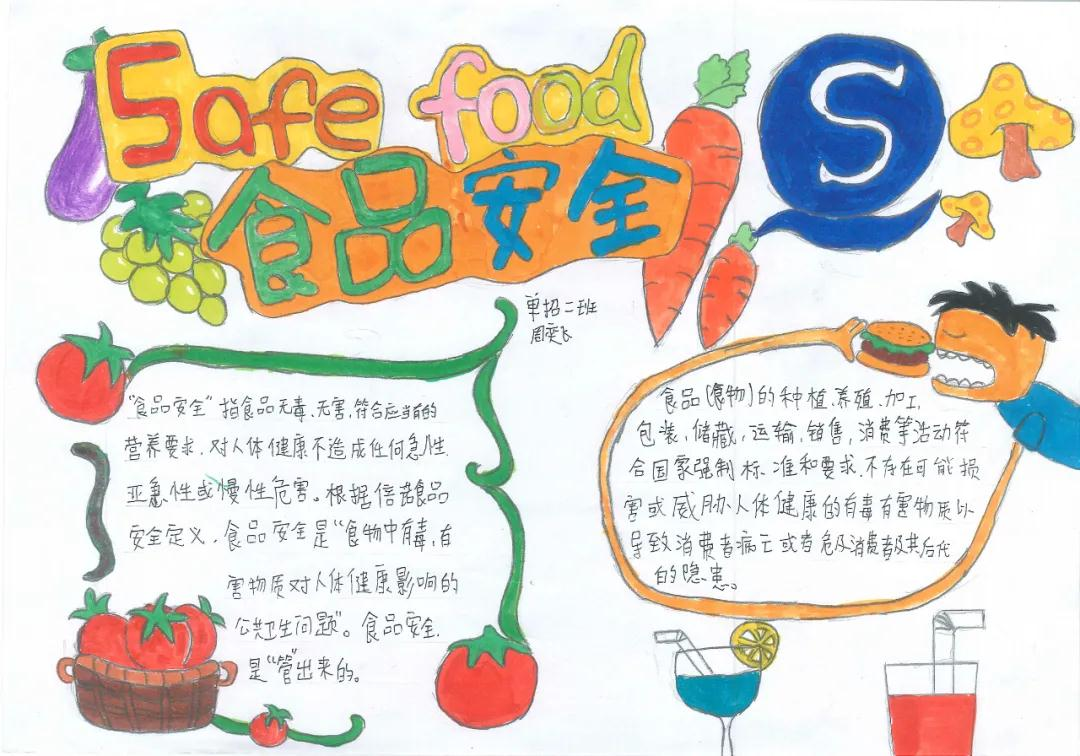 Safe food
食品安全
S
单招二班
周奕飞
"食品安全"指食品无毒、无害,符合应当有的
营养要求,对人体健康不造成任何急性、
亚急性或慢性危害。根据倍诺食品
安全定义,食品安全是"食物中有毒、有
害物质对人体健康影响的
公共卫生问题"。食品安全
是"管"出来的。
食品(食物)的种植、养殖、加工、
包装、储藏、运输、销售、消费等活动符
合国家强制标准和要求,不存在可能损
害或威胁人体健康的有毒有害物质以
导致消费者病亡或者危及消费者及其后代
的隐患。